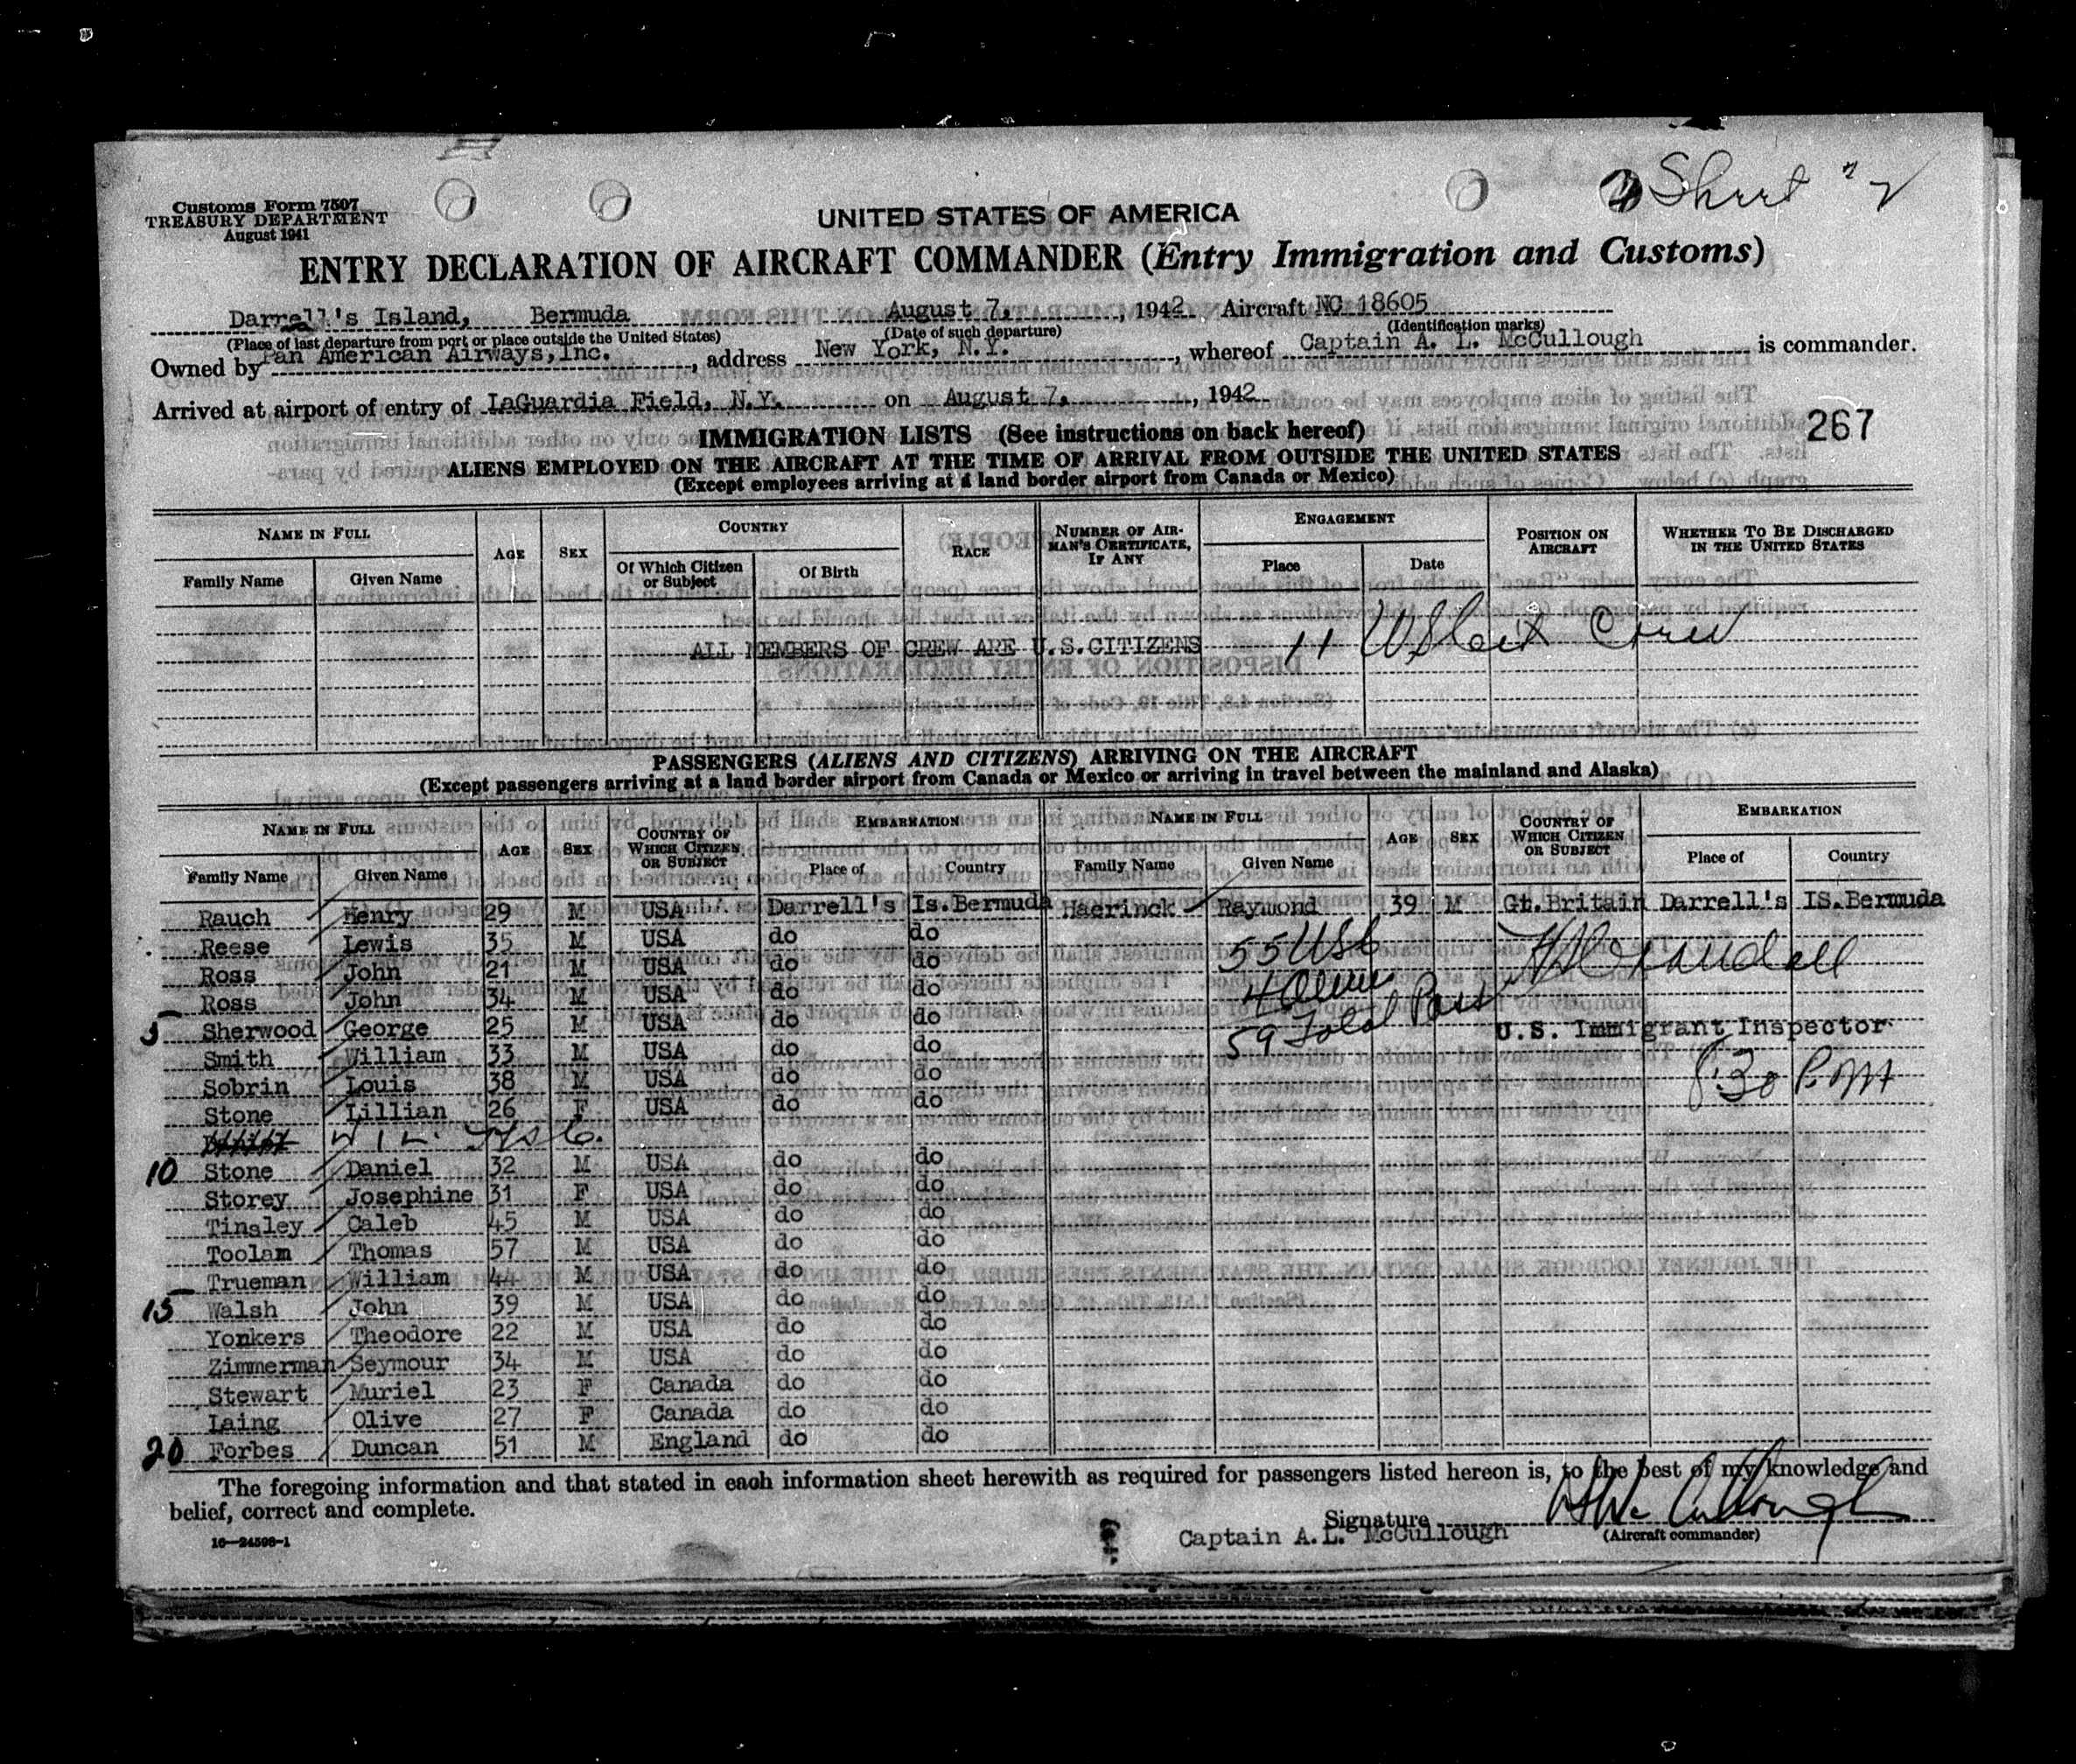 Sheet #2
Customs Form 7507
TREASURY DEPARTMENT
August 1941
UNITED STATES OF AMERICA
ENTRY DECLARATION OF AIRCRAFT COMMANDER (Entry Immigration and Customs)
Darrell's Island, Bermuda August 7, , 1942 Aircraft NC 18605
(Place of last departure from port or place outside the United States) (Date of such departure) (Identification marks)
Owned by Pan American Airways, Inc. , address New York, N.Y. , whereof Captain A. L. McCullough is commander.
Arrived at airport of entry of LaGuardia Field, N.Y. on August 7, , 1942
267
IMMIGRATION LISTS (See instructions on back hereof)
ALIENS EMPLOYED ON THE AIRCRAFT AT THE TIME OF ARRIVAL FROM OUTSIDE THE UNITED STATES
(Except employees arriving at a land border airport from Canada or Mexico)
NAME IN FULL AGE SEX COUNTRY RACE NUMBER OF AIRMAN'S CERTIFICATE, IF ANY ENGAGEMENT POSITION ON AIRCRAFT WHETHER TO BE DISCHARGED IN THE UNITED STATES
Family Name Given Name Of Which Citizen or Subject Of Birth Place Date
ALL MEMBERS OF CREW ARE U.S.CITIZENS 11 Crew
PASSENGERS (ALIENS AND CITIZENS) ARRIVING ON THE AIRCRAFT
(Except passengers arriving at a land border airport from Canada or Mexico or arriving in travel between the mainland and Alaska)
NAME IN FULL AGE SEX COUNTRY OF WHICH CITIZEN OR SUBJECT EMBARKATION NAME IN FULL AGE SEX COUNTRY OF WHICH CITIZEN OR SUBJECT EMBARKATION
Family Name Given Name Place of Country Family Name Given Name Place of Country
Rauch Henry 29 M USA Darrell's Is.Bermuda Haerinck Raymond 39 M Gt.Britain Darrell's IS.Bermuda
Reese Lewis 35 M USA do do 55 USC
Ross John 21 M USA do do
Ross John 34 M USA do do 4 Aliens
5 Sherwood George 25 M USA do do 59 Total Pass U.S. Immigrant Inspector
Smith William 33 M USA do do
Sobrin Louis 38 M USA do do 8:30 P.M
Stone Lillian 26 F USA do do
10 Stone Daniel 32 M USA do do
Storey Josephine 31 F USA do do
Tinsley Caleb 45 M USA do do
Toolam Thomas 57 M USA do do
Trueman William 44 M USA do do
15 Walsh John 39 M USA do do
Yonkers Theodore 22 M USA do do
Zimmerman Seymour 34 M USA do do
Stewart Muriel 23 F Canada do do
Laing Olive 27 F Canada do do
20 Forbes Duncan 51 M England do do
The foregoing information and that stated in each information sheet herewith as required for passengers listed hereon is, to the best of my knowledge and
belief, correct and complete.
Signature
Captain A.L. McCullough (Aircraft commander)
16—24598-1